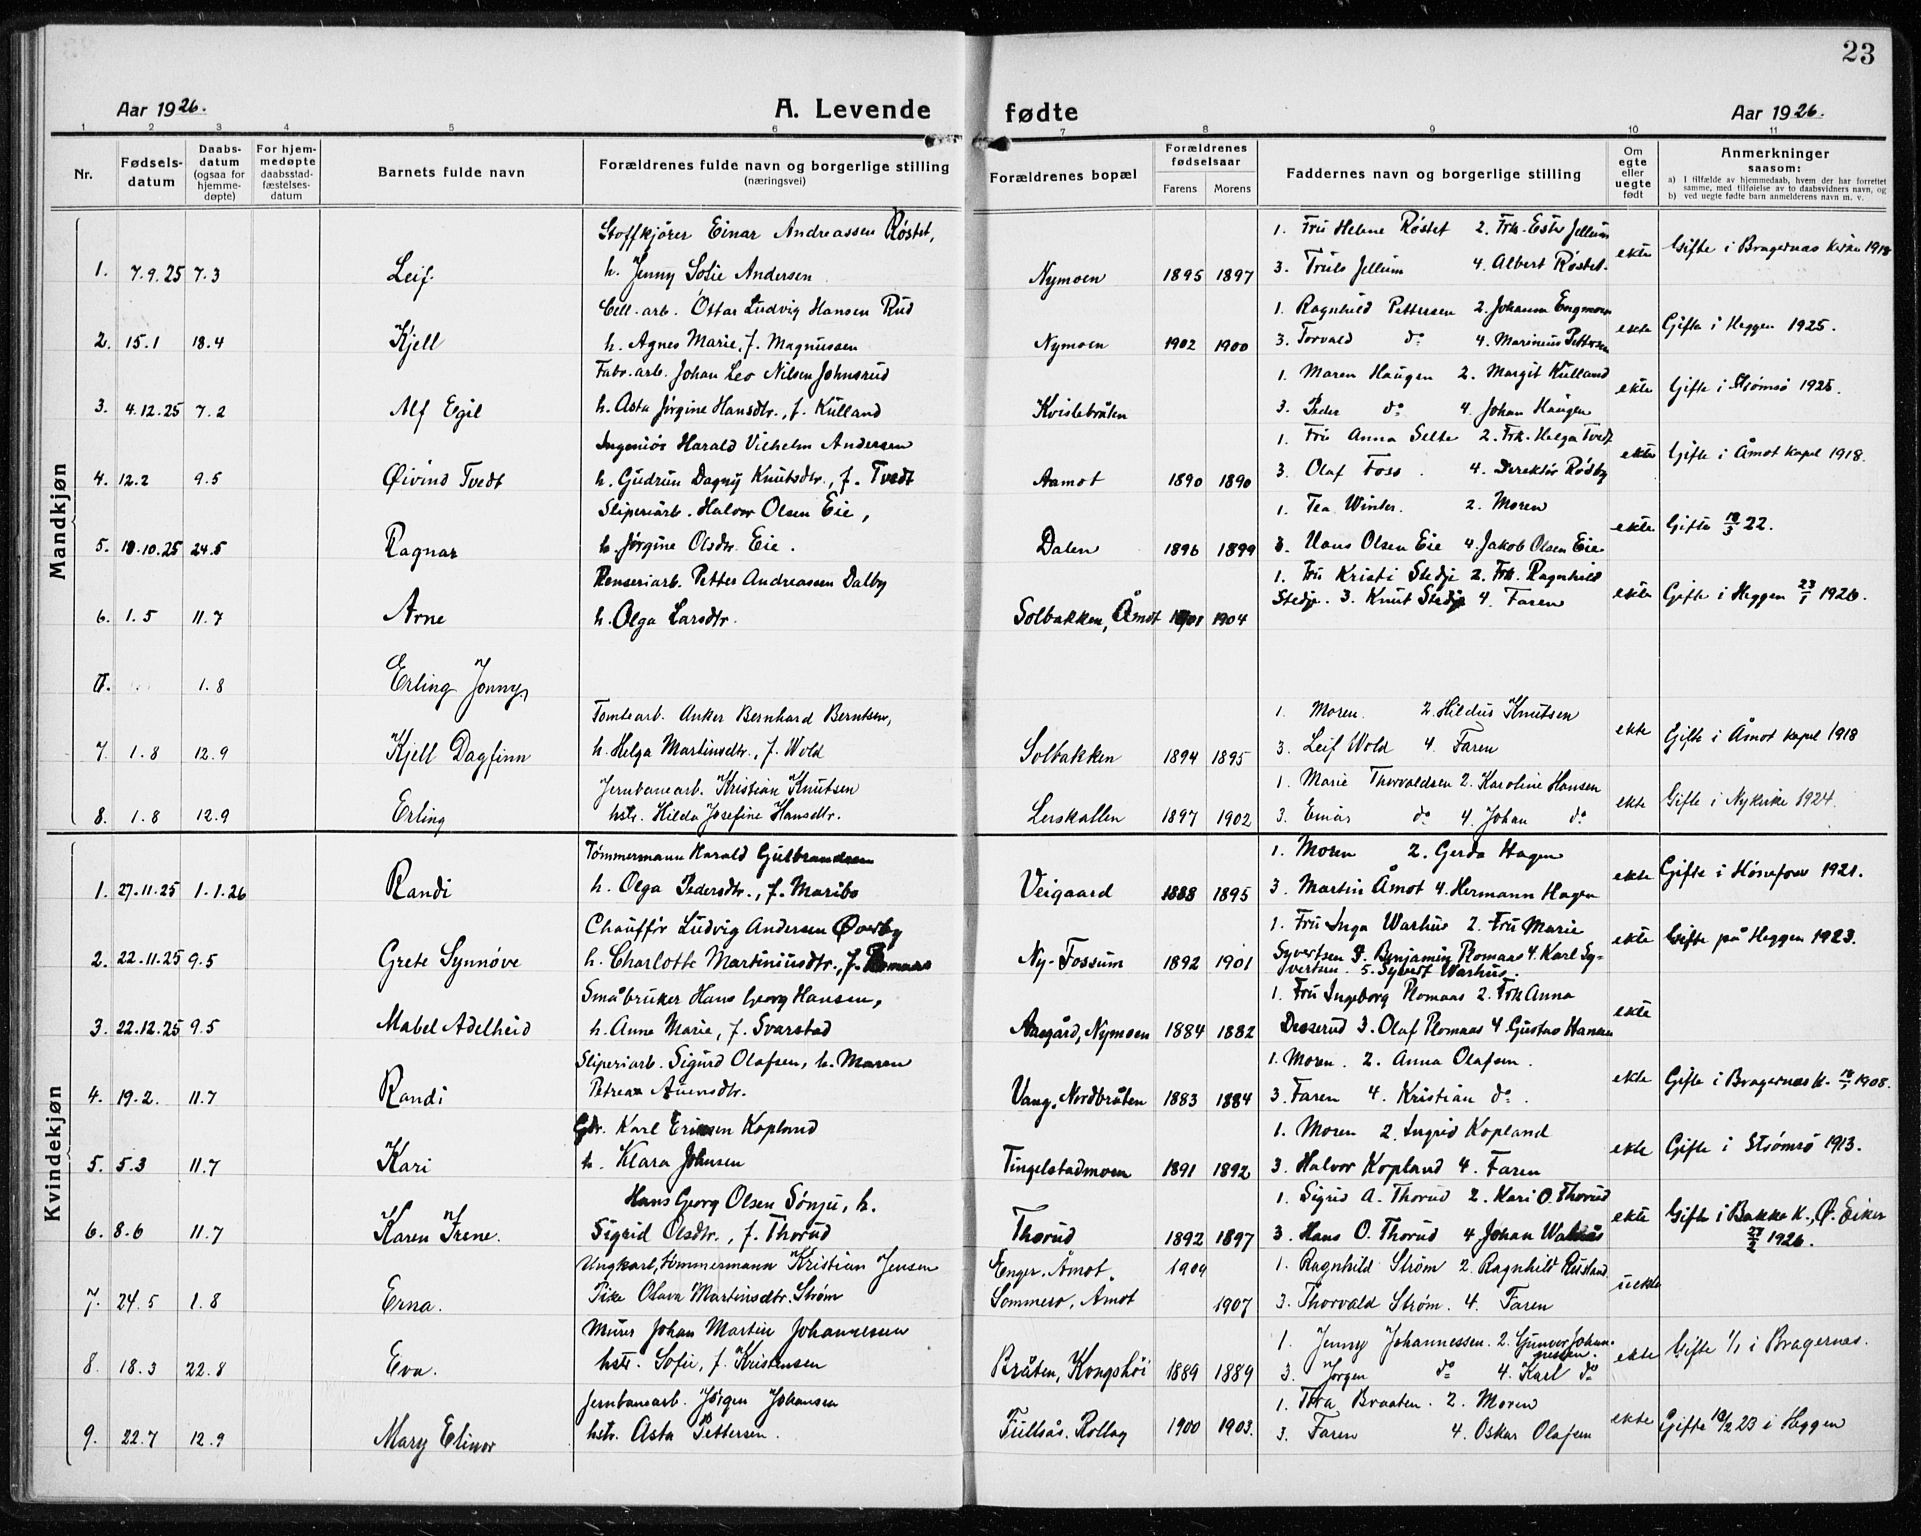 23
Aar 1926.
A. Levende fødte
Aar 1926.
1 2 3 4 5 6 7 8 9 10 11
Nr.
Fødsels-datum
Daabs-datum (ogsaa for hjemme-døpte)
For hjem-medøpte daabsstad-fæstelses-datum
Barnets fulde navn
Forældrenes fulde navn og borgerlige stilling (næringsvei)
Forældrenes bopæl
Forældrenes fødselsaar
Farens Morens
Faddernes navn og borgerlige stilling
Om egte eller uegte født
Anmerkninger saasom:
a) I tilfælde av hjemmedaab, hvem der har forrettet samme, med tilføielse av to daabsvidners navn, og
b) ved uegte fødte barn anmelderens navn m. v.
Mandkjøn
Stoffkjører Einar Andreassen Røstet, 1. Fru Helene Røstet 2. Frk. Ester Jellum
1. 7.9.25 7.3 Leif. h. Jenny Sofie Andersen Nymoen 1895 1897 3. Truls Jellum 4. Albert Røstet. ekte Gifte i Bragernas kirke 1918
Cell. arb. Ottar Ludvig Hansen Rud 1. Ragnhild Pettersen 2. Johanna Engmoen
2. 15.1 18.4 Kjell h. Agnes Marie, f. Magnussen Nymoen 1902 1900 3. Torvald do 4. Marinius Pettersen ekte Gifte i Heggen 1925.
Fabr. arb. Johan Leo Nilsen Johnsrud 1. Maren Haugen 2. Margit Kulland
3. 4.12.25 7.2 Alf Egil h. Asta Jørgine Hansdtr., f. Kulland Kvislebråten 3. Peder do 4. Johan Haugen ekte Gifte i Strømsø 1925.
Ingeniør Harald Vilhelm Andersen 1. Fru Anna Selte 2. Frk. Helga Tvedt
4. 12.2 9.5 Øivind Tvedt h. Gudrun Dagny Knutsdtr., f. Tvedt Aamot 1890 1890 3. Olaf Foss. 4. Direktør Rødby ekte Gifte i Åmot kapel 1918.
Sliperiarb. Halvor Olsen Eie, 1. Tea Winter. 2. Moren
5. 10.10.25 24.5 Ragnar h. Jørgine Olsdtr. Eie. Dalen 1896 1899 3. Hans Olsen Eie 4. Jakob Olsen Eie. ekte Gifte 18/3 22.
Renseriarb. Petter Andreassen Dalby 1. Fru Kristi Stedje 2. Frk. Ragnhild
6. 1.5 11.7 Arne h. Olga Larsdtr. Solbakken, Åmot 1901 1904 Stedje. 3. Knut Stedje 4. Faren ekte Gifte i Heggen 23/1 1926.
1.8 Erling Jonny,
Tomtearb. Anker Bernhard Berntsen, 1. Moren. 2. Hildus Knutsen
7. 1.8 12.9 Kjell Dagfinn h. Helga Martinsdtr., f. Wold Solbakken 1894 1895 3. Leif Wold 4. Faren ekte Gifte i Åmot kapel 1918
Jernbanearb. Kristian Knutsen 1. Marie Thorvaldsen 2. Karoline Hansen
8. 1.8 12.9 Erling hstr. Hilda Josefine Hansdtr. Lerskallen 1897 1902 3. Einar do 4. Johan do ekte Gifte i Nykirke 1924.
Kvindekjøn
Tømmermann Harald Gulbrandsen 1. Moren 2. Gerda Hagen
1. 27.11.25 1.1.26 Randi h. Olga Pedersdtr., f. Maribo Veigaard 1888 1895 3. Martin Åmot 4. Hermann Hagen ekte Gifte i Hønefoss 1921.
Chauffør Ludvig Andersen Øverby 1. Fru Inga Warhus 2. Fru Marie
2. 22.11.25 9.5 Grete Synnøve h. Charlotte Martiniusdtr., f. Plomaas Ny-Fossum 1892 1901 Syvertsen 3. Benjamin Plomaas 4. Karl Sy-vertsen. 5. Syvert Warhus. ekte Gifte på Heggen 1923.
Småbruker Hans Georg Hansen, 1. Fru Ingeborg Plomaas 2. Frk Anna
3. 22.12.25 9.5 Mabel Adelheid h. Anne Marie, f. Svarstad Aasgård, Nymoen 1884 1882 Disserud 3. Olaf Plomaas 4. Gustav Hansen ekte
Sliperiarb. Sigurd Olafsen, h. Maren 1. Moren. 2. Anna Olafsen.
4. 19.2. 11.7 Randi Petrea Auensdtr. Vang, Nordbråten 1883 1884 3. Faren 4. Kristian do. ekte Gifte i Bragernæs K. 1908.
Gdr. Karl Eriksen Kopland 1. Moren 2. Ingrid Kopland
5. 5.3 11.7 Kari h. Klara Johnsen Tingelstadmoen 1891 1892 3. Halvor Kopland 4. Faren ekte Gifte i Strømsø 1913.
Hans Georg Olsen Sønju, h. 1. Sigrid A. Thorud 2. Kari O. Thorud
6. 8.6 11.7 Karen Irene. Sigrid Olsdtr., f. Thorud Thorud 1892 1897 3. Hans O. Thorud 4 Johan ekte Gifte i Bakke K., Ø. Eiker 27/2 1926.
Ungkarl, tømmermann Kristian Jensen Enger, Åmot. 1904 1. Ragnhild Strøm 2. Ragnhild
7. 24.5 1.8 Erna. Pike Olava Martinsdtr. Strøm Sommero, Åmot 1907 3. Thorvald Strøm. 4. Faren uekte
Murer Johan Martin Johannessen 1. Jenny Johannessen. 2. Gunvor Johan-nessen.
8. 18.3 22.8 Eva. hstr. Sofie, f. Kristensen Bråten, Kongshøi 1889 1889 3. Jørgen do 4. Karl do ekte Gifte 1/1 i Bragernas.
Jernbanearb. Jørgen Johansen 1. Tora Braaten. 2. Moren
9. 22.7 12.9 Mary Elinor hstr. Asta Pettersen. Fullsås. Rollag 1900 1903. 3. Faren 4. Oskar Olafsen ekte Gifte 10/2 23 i Heggen